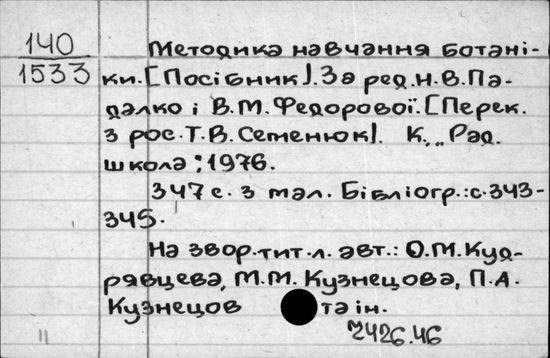 140
1533
Методика навчання ботані-
ки. [Посібник]. За ред. Н.В. Па-
далко і В.М. Федорової. [Перек.
з рос. Т.В. Семенюк]. К., „Рад.
школа", 1976.
347 с. з мал. Бібліогр.: с. 343-
345.
На звор. тит. л. авт.: О.М. Куд-
рявцева, М.М. Кузнецова, П.А.
Кузнецов та ін.
2426.46
11